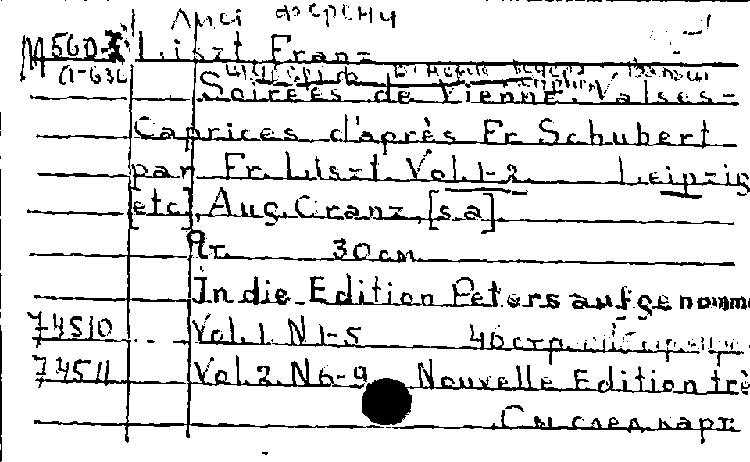 Лист Ференц
М 560-3 Liszt Franz
Л-636
Soirées de Vienne. Valses-
Caprices d'après Fr. Schubert
par Fr. Liszt. Vol. 1-2. Leipzig
[etc], Aug. Cranz, [s.a].
2т. 30см.
In die Edition Peters aufgenomme
74510 Vol. 1. N 1-5 46стр.
74511 Vol. 2. N 6-9 Nouvelle Edition trè
См след карт.